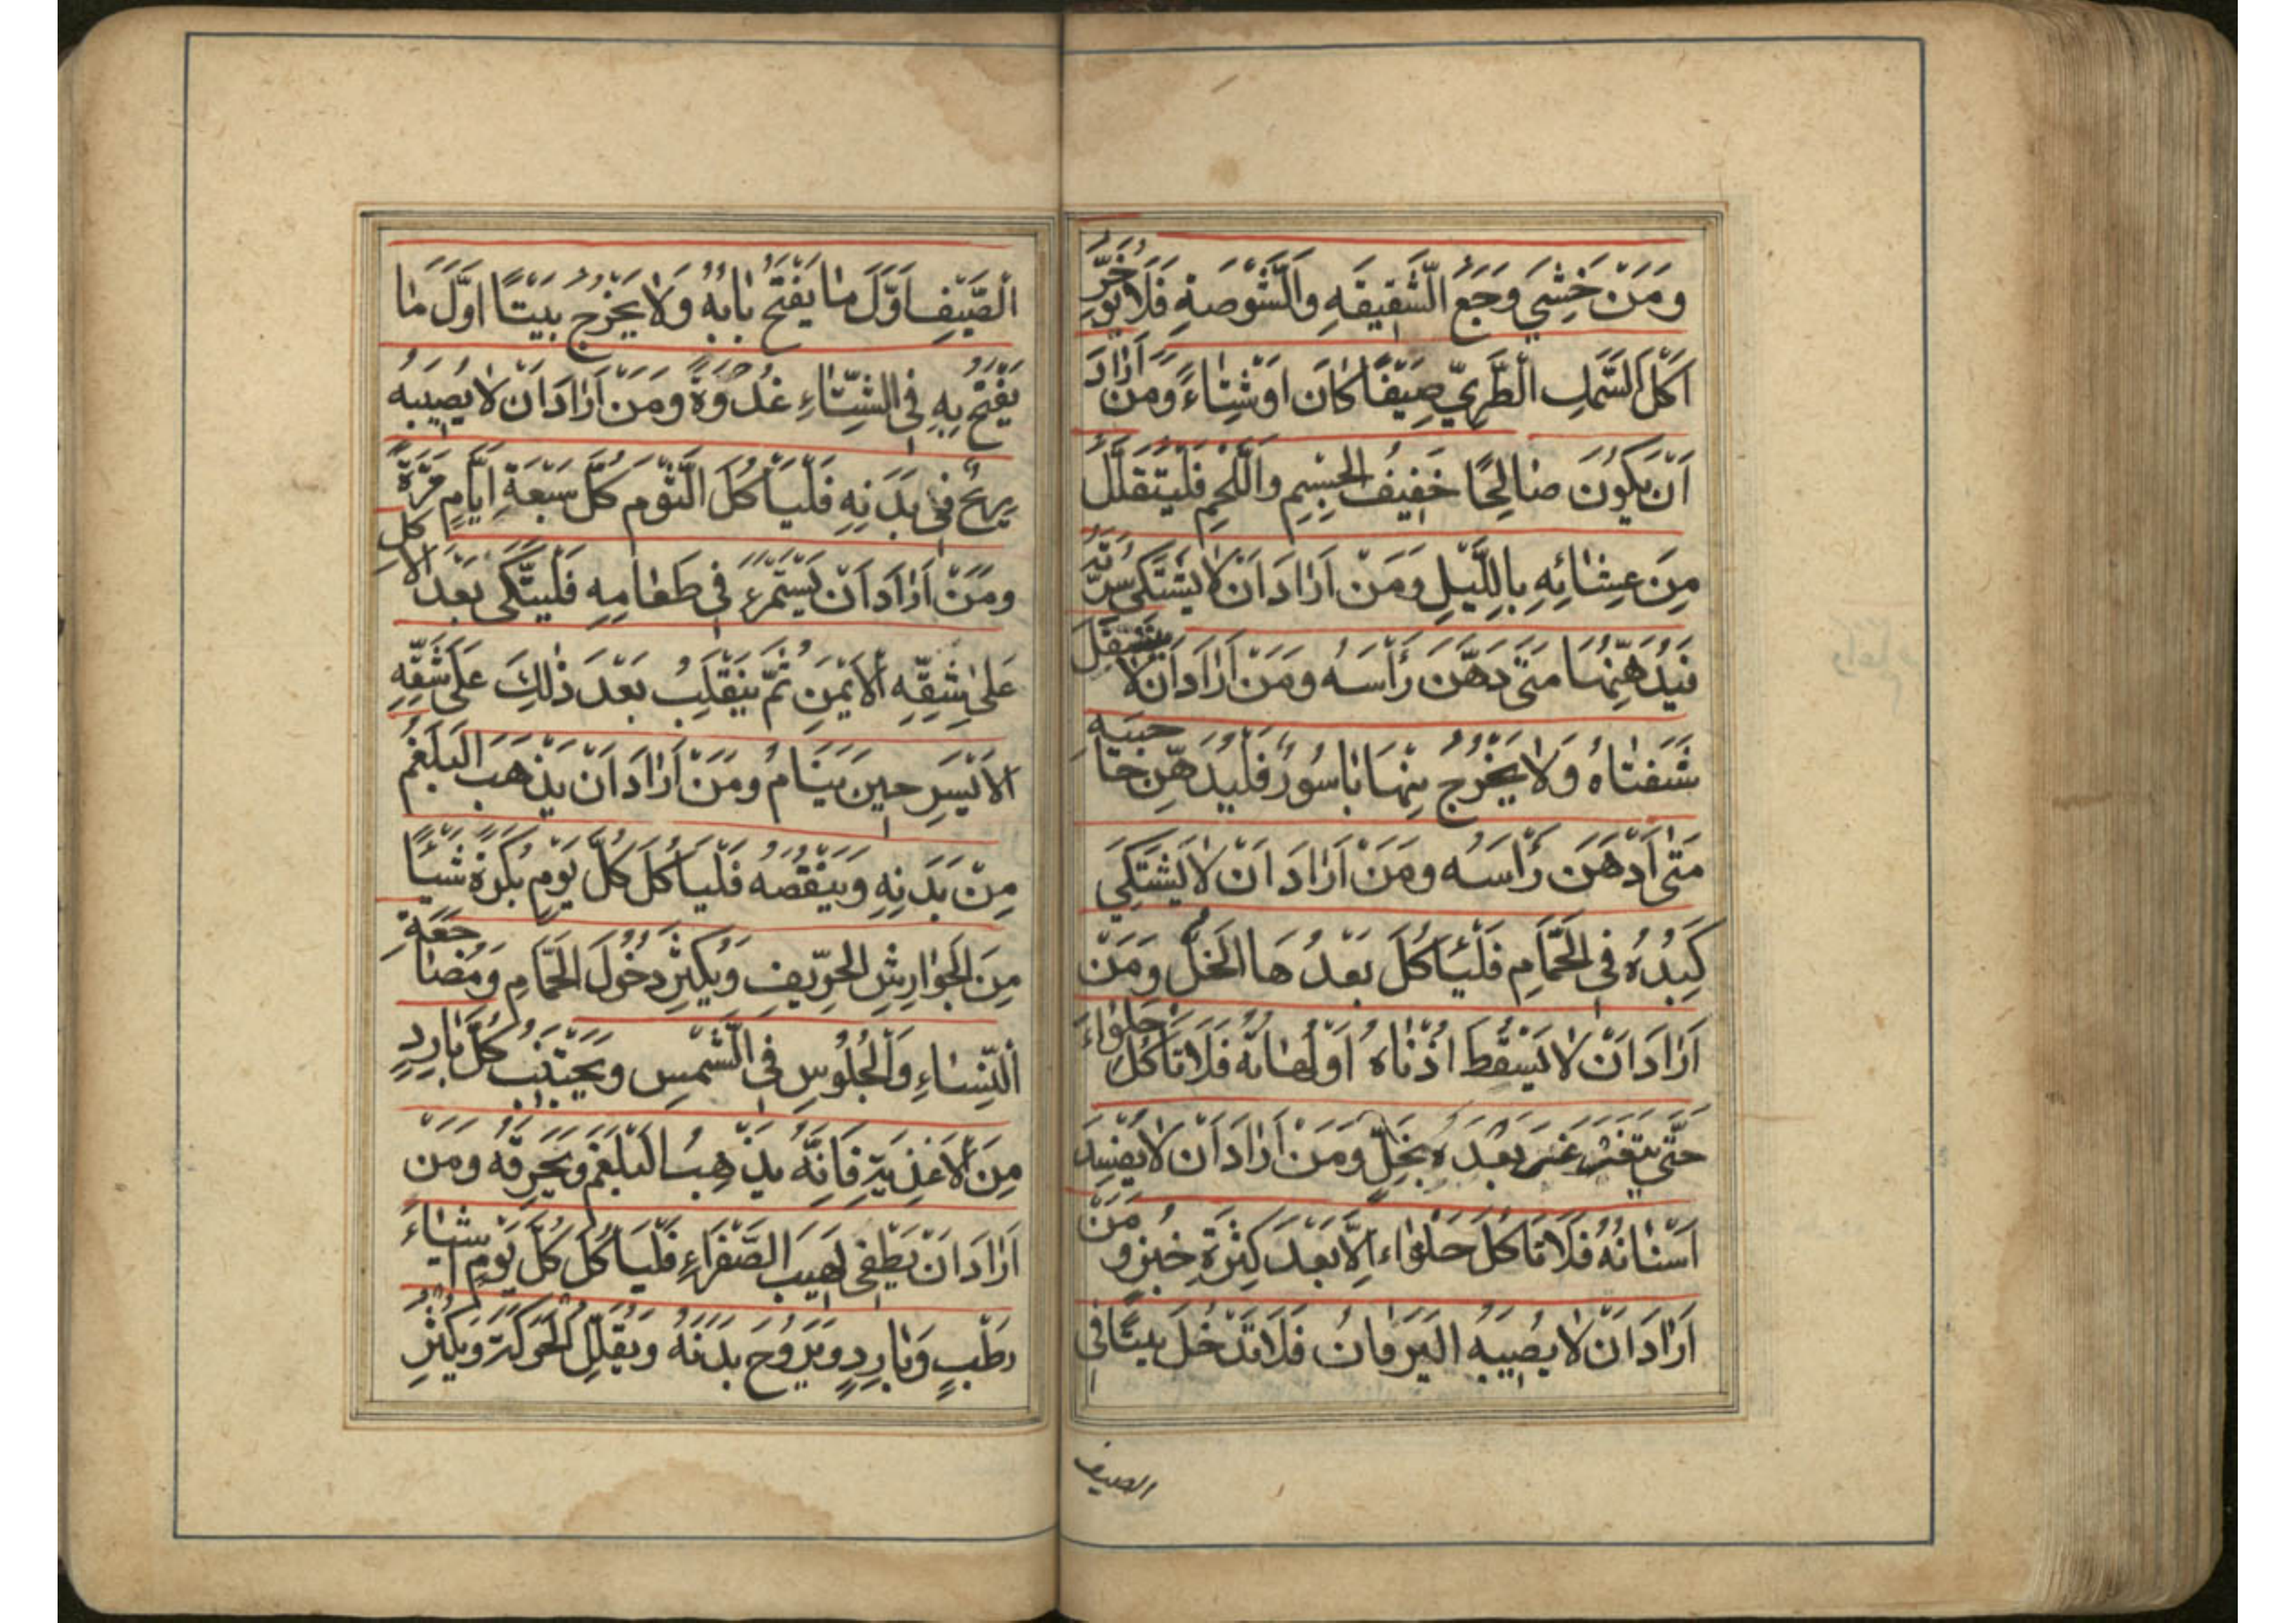 وَمَنْ خَشِيَ وَجَعَ الشَّقِيقَهِ وَالشَّوْصَةِ فَلَا يُؤَخِّرُ
اَكْلَ السَّمَكِ الطَّرِيِّ صَيْفًا كَانَ اَوْ شِتَاءً وَمَنْ اَرَادَ
اَنْ يَكُونَ صَالِحًا خَفِيفُ الْجِسْمِ وَاللَّحْمِ فَلْيُتَقَلِّلْ
مِنْ عِشَائِهِ بِاللَّيْلِ وَمَنْ اَرَادَ اَنْ لَا يَشْتَكِيَ سُرَّتَهُ
فَيُدَهِّنُهَا مَتَى دَهَّنَ رَأْسَهُ وَمَنْ اَرَادَ اَنْ لَا
شَفَتَاهُ وَلَا يَخْرُجُ مِنْهَا بَاسُورٌ فَلْيُدَهِّنْ حَاجِبَيْهِ
مَتَى اَدْهَنَ رَأْسَهُ وَمَنْ اَرَادَ اَنْ لَا يَشْتَكِيَ
كَبِدُهُ فِي الْحَمَّامِ فَلْيَأْكُلْ بَعْدَهَا الْخَلَّ وَمَنْ
اَرَادَ اَنْ لَا يَسْقُطَ اُذْنَاهُ اَوْ لَهَاتُهُ فَلَا تَأْكُلْ حَلْوَاءَ
حَتَّى بَعْدَهُ بِخَلٍّ وَمَنْ اَرَادَ اَنْ لَا يُفْسِدَ
اَسْنَانُهُ فَلَا تَأْكُلْ حَلْوَاءَ اِلَّا بَعْدَ كَثْرَةِ خُبْزٍ وَمَنْ
اَرَادَ اَنْ لَا يُصِيبَهُ الْيَرَقَانُ فَلَا تَدْخُلْ بَيْتًا فِي
الصيف
الصَّيْفِ اَوَّلَ مَا يَفْتَحُ بَابُهُ وَلَا يَخْرُجُ بَيْتًا اَوَّلَ مَا
يَفْتَحُ بِهِ فِي الشِّتَاءِ غُدْوَةً وَمَنْ اَرَادَ اَنْ لَا يُصِيبَهُ
رِيحٌ فِي بَدَنِهِ فَلْيَأْكُلَ الثَّوْمَ كُلَّ سَبْعَةِ اَيَّامٍ مَرَّةً
وَمَنْ اَرَادَ اَنْ يَسْتَمْرِءَ فِي طَعَامِهِ فَلْيَتَّكِي بَعْدَ الْاَكْلِ
عَلَى شِقِّهِ الْاَيْمَنِ ثُمَّ يَنْقَلِبُ بَعْدَ ذٰلِكَ عَلَى شِقِّهِ
الْاَيْسَرِ حِينَ يَنَامُ وَمَنْ اَرَادَ اَنْ يَذْهَبَ الْبَلْغَمُ
مِنْ بَدَنِهِ وَيَنْقُصُهُ فَلْيَأْكُلْ كُلَّ يَوْمٍ بُكْرَةً شَيْئًا
مِنَ الْجَوَارِشِ الْحِرِّيفِ وَيُكْثِرُ دُخُولَ الْحَمَّامِ وَمُضَاجَعَةِ
النِّسَاءِ وَالْجُلُوسِ فِي الشَّمْسِ وَيَجْتَنِبُ كُلَّ بَارِدٍ
مِنَ الْاَغْذِيَةِ فَاِنَّهُ يُذْهِبُ الْبَلْغَمَ وَيُحْرِقُهُ وَمَنْ
اَرَادَ اَنْ يُطْفِيَ لَهِيبَ الصَّفْرَاءِ فَلْيَأْكُلْ كُلَّ يَوْمٍ اَشْيَاءَ
رَطْبٍ وَبَارِدٍ وَيُرَوِّحُ بَدَنَهُ وَيُقَلِّلُ الْحَرَكَةَ وَيُكْثِرُ